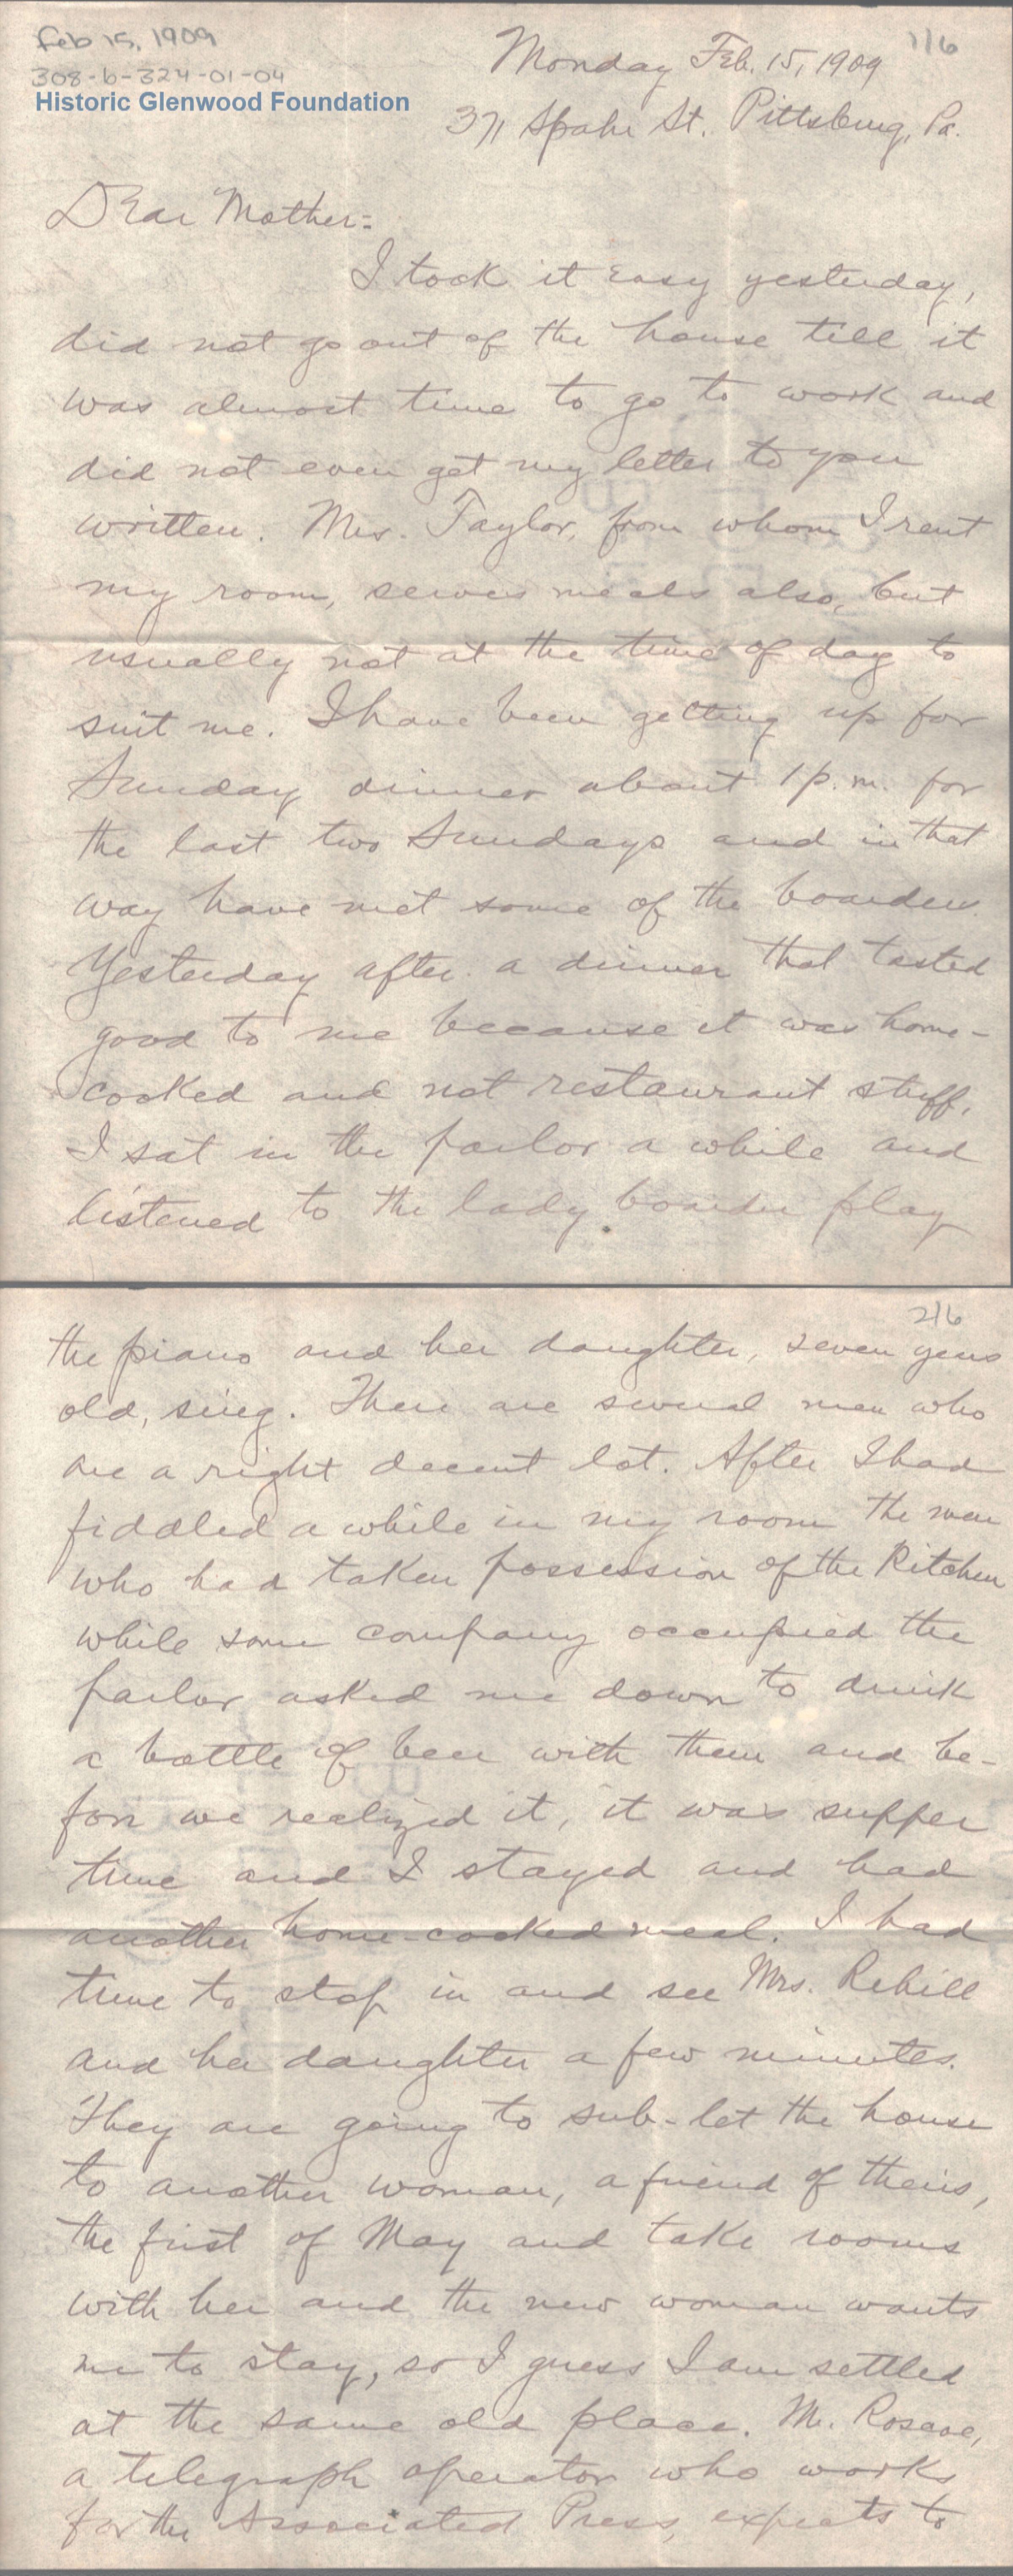 Feb 15, 1909
1/6
308-6-324-01-04
Historic Glenwood Foundation
Monday Feb. 15, 1909
371 Spahr St. Pittsburg, Pa.
Dear Mother:-
I took it easy yesterday,
did not go out of the house till it
was almost time to go to work and
did not even get my letter to you
written. Mrs. Taylor, from whom I rent
my room, serves meals also, but
usually not at the time of day to
suit me. I have been getting up for
Sunday dinner about 1 p.m. for
the last two Sundays and in that
way have met some of the boarders.
Yesterday after a dinner that tasted
good to me because it was home-
cooked and not restaurant stuff,
I sat in the parlor a while and
listened to the lady boarder play
2/6
the piano and her daughter, seven years
old, sing. There are several men who
are a right decent lot. After I had
fiddled a while in my room the men
who had taken possession of the kitchen
while some company occupied the
parlor asked me down to drink
a bottle of beer with them and be-
fore we realized it, it was supper
time and I stayed and had
another home-cooked meal. I had
time to stop in and see Mrs. Rehill
and her daughter a few minutes.
They are going to sub-let the house
to another woman, a friend of theirs,
the first of May and take rooms
with her and the new woman wants
me to stay, so I guess I am settled
at the same old place. Mr. Roscoe,
a telegraph operator who works
for the Associated Press, expects to